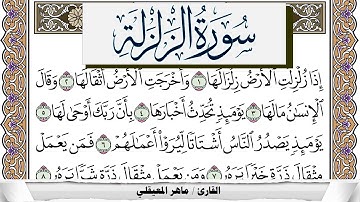 سُورَةُ الزَّلْزَلَةِ
إِذَا زُلْزِلَتِ الْأَرْضُ زِلْزَالَهَا ١ وَأَخْرَجَتِ الْأَرْضُ أَثْقَالَهَا ٢ وَقَالَ
الْإِنسَانُ مَا لَهَا ٣ يَوْمَئِذٍ تُحَدِّثُ أَخْبَارَهَا ٤ بِأَنَّ رَبَّكَ أَوْحَىٰ لَهَا ٥
يَوْمَئِذٍ يَصْدُرُ النَّاسُ أَشْتَاتًا لِّيُرَوْا أَعْمَالَهُمْ ٦ فَمَن يَعْمَلْ
مِثْقَالَ ذَرَّةٍ خَيْرًا يَرَهُ ٧ وَمَن يَعْمَلْ مِثْقَالَ ذَرَّةٍ شَرًّا يَرَهُ ٨
القارئ / ماهر المعيقلي